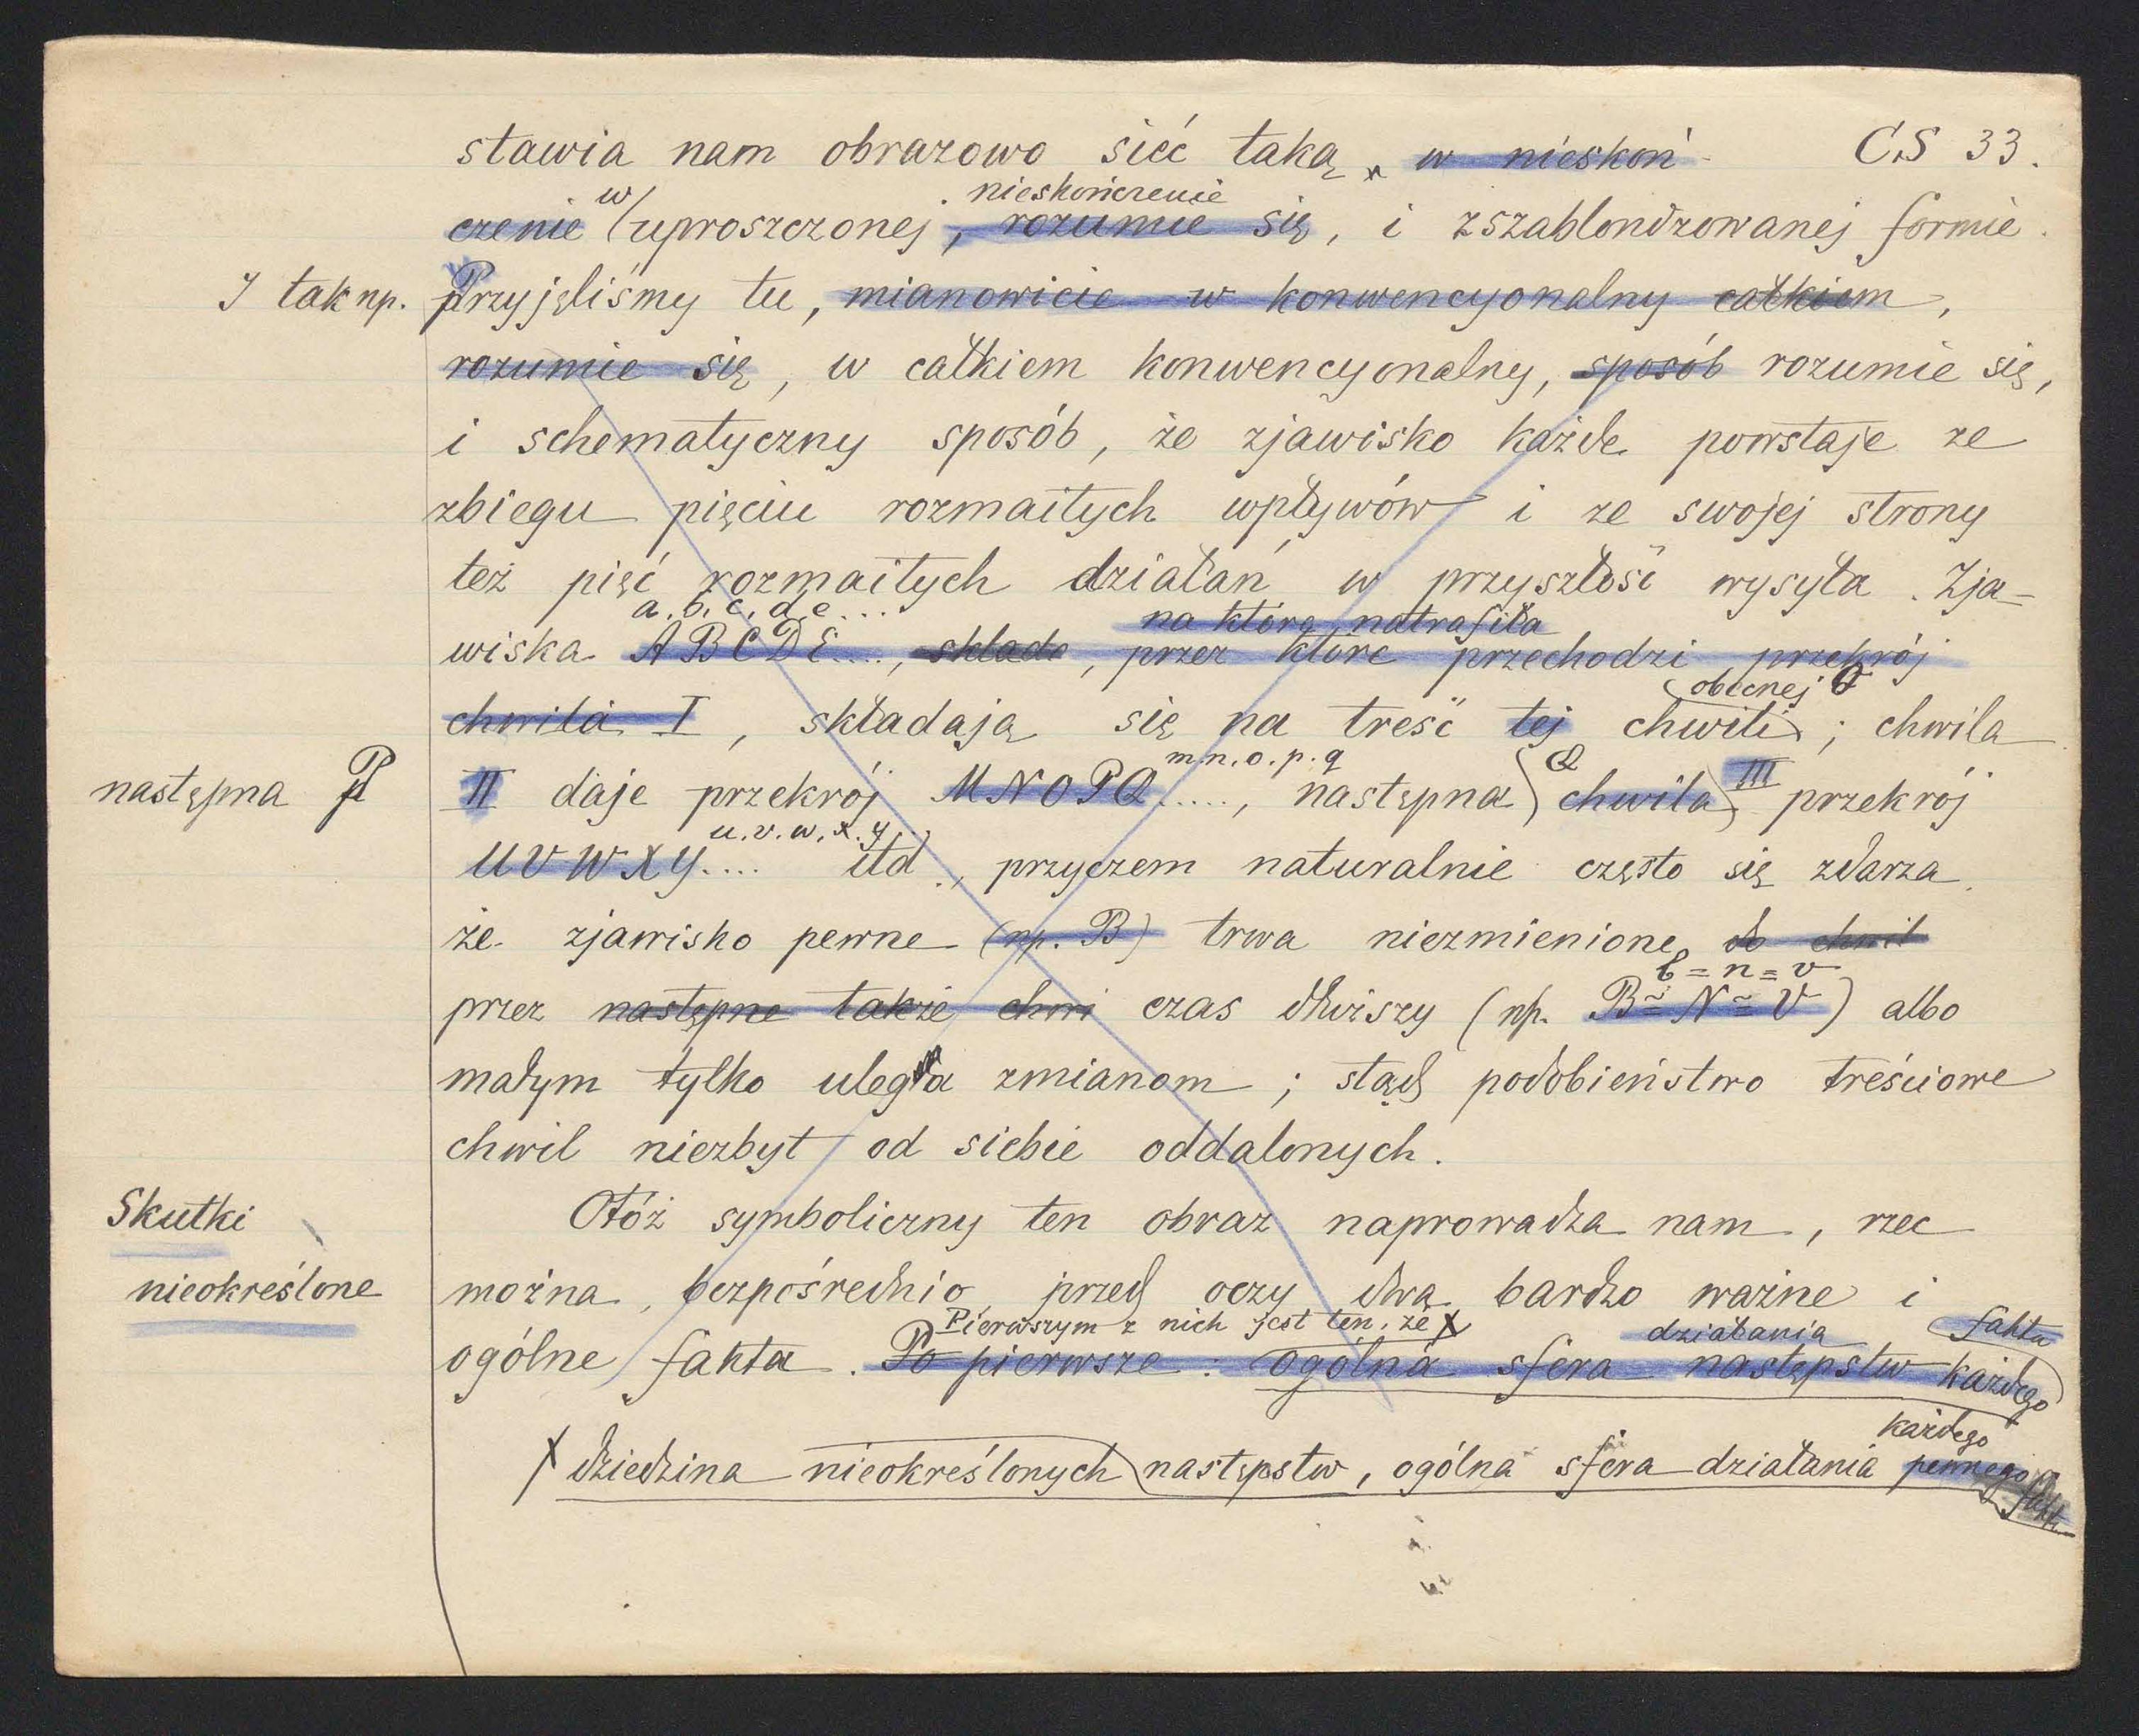 stawia nam obrazowo sieć taką, w nieskoń- CS 33.
w nieskończenie
czenie uproszczonej, rozumie się, i zszablonizowanej formie.
I tak np. Przyjęliśmy tu, mianowicie w konwencyonalny całkiem,
rozumie się, w całkiem konwencyonalny, sposób rozumie się,
i schematyczny sposób, że zjawisko każde powstaje ze
zbiegu pięciu rozmaitych wpływów i ze swojej strony
też pięć rozmaitych działań w przyszłość wysyła. Zja-
a. b. c. d. e... na które natrafiła
wiska A B C D E...., składa, przez które przechodzi przekrój
obecnej O
chwila I, składają się na treść tej chwili; chwila
m. n. o. p. q Q III
następna P II daje przekrój M N O P Q....., następna chwila przekrój
u. v. w. x. y.
U V W X Y.... itd., przyczem naturalnie często się zdarza
że zjawisko pewne (np. B) trwa niezmienione do chwil
b = n = v
przez następne także chwi czas dłuższy (np. B = N = V) albo
małym tylko ulega zmianom; stąd podobieństwo treściowe
chwil niezbyt od siebie oddalonych.
Skutki Otóż symboliczny ten obraz naprowadza nam, rzec
nieokreślone można, bezpośrednio przed oczy dwa bardzo ważne i
Pierwszym z nich jest ten, że X działania faktu
ogólne fakta. Po pierwsze: ogólna sfera następstw każdego
każdego
X dziedzina nieokreślonych następstw, ogólna sfera działania pewnego fakt